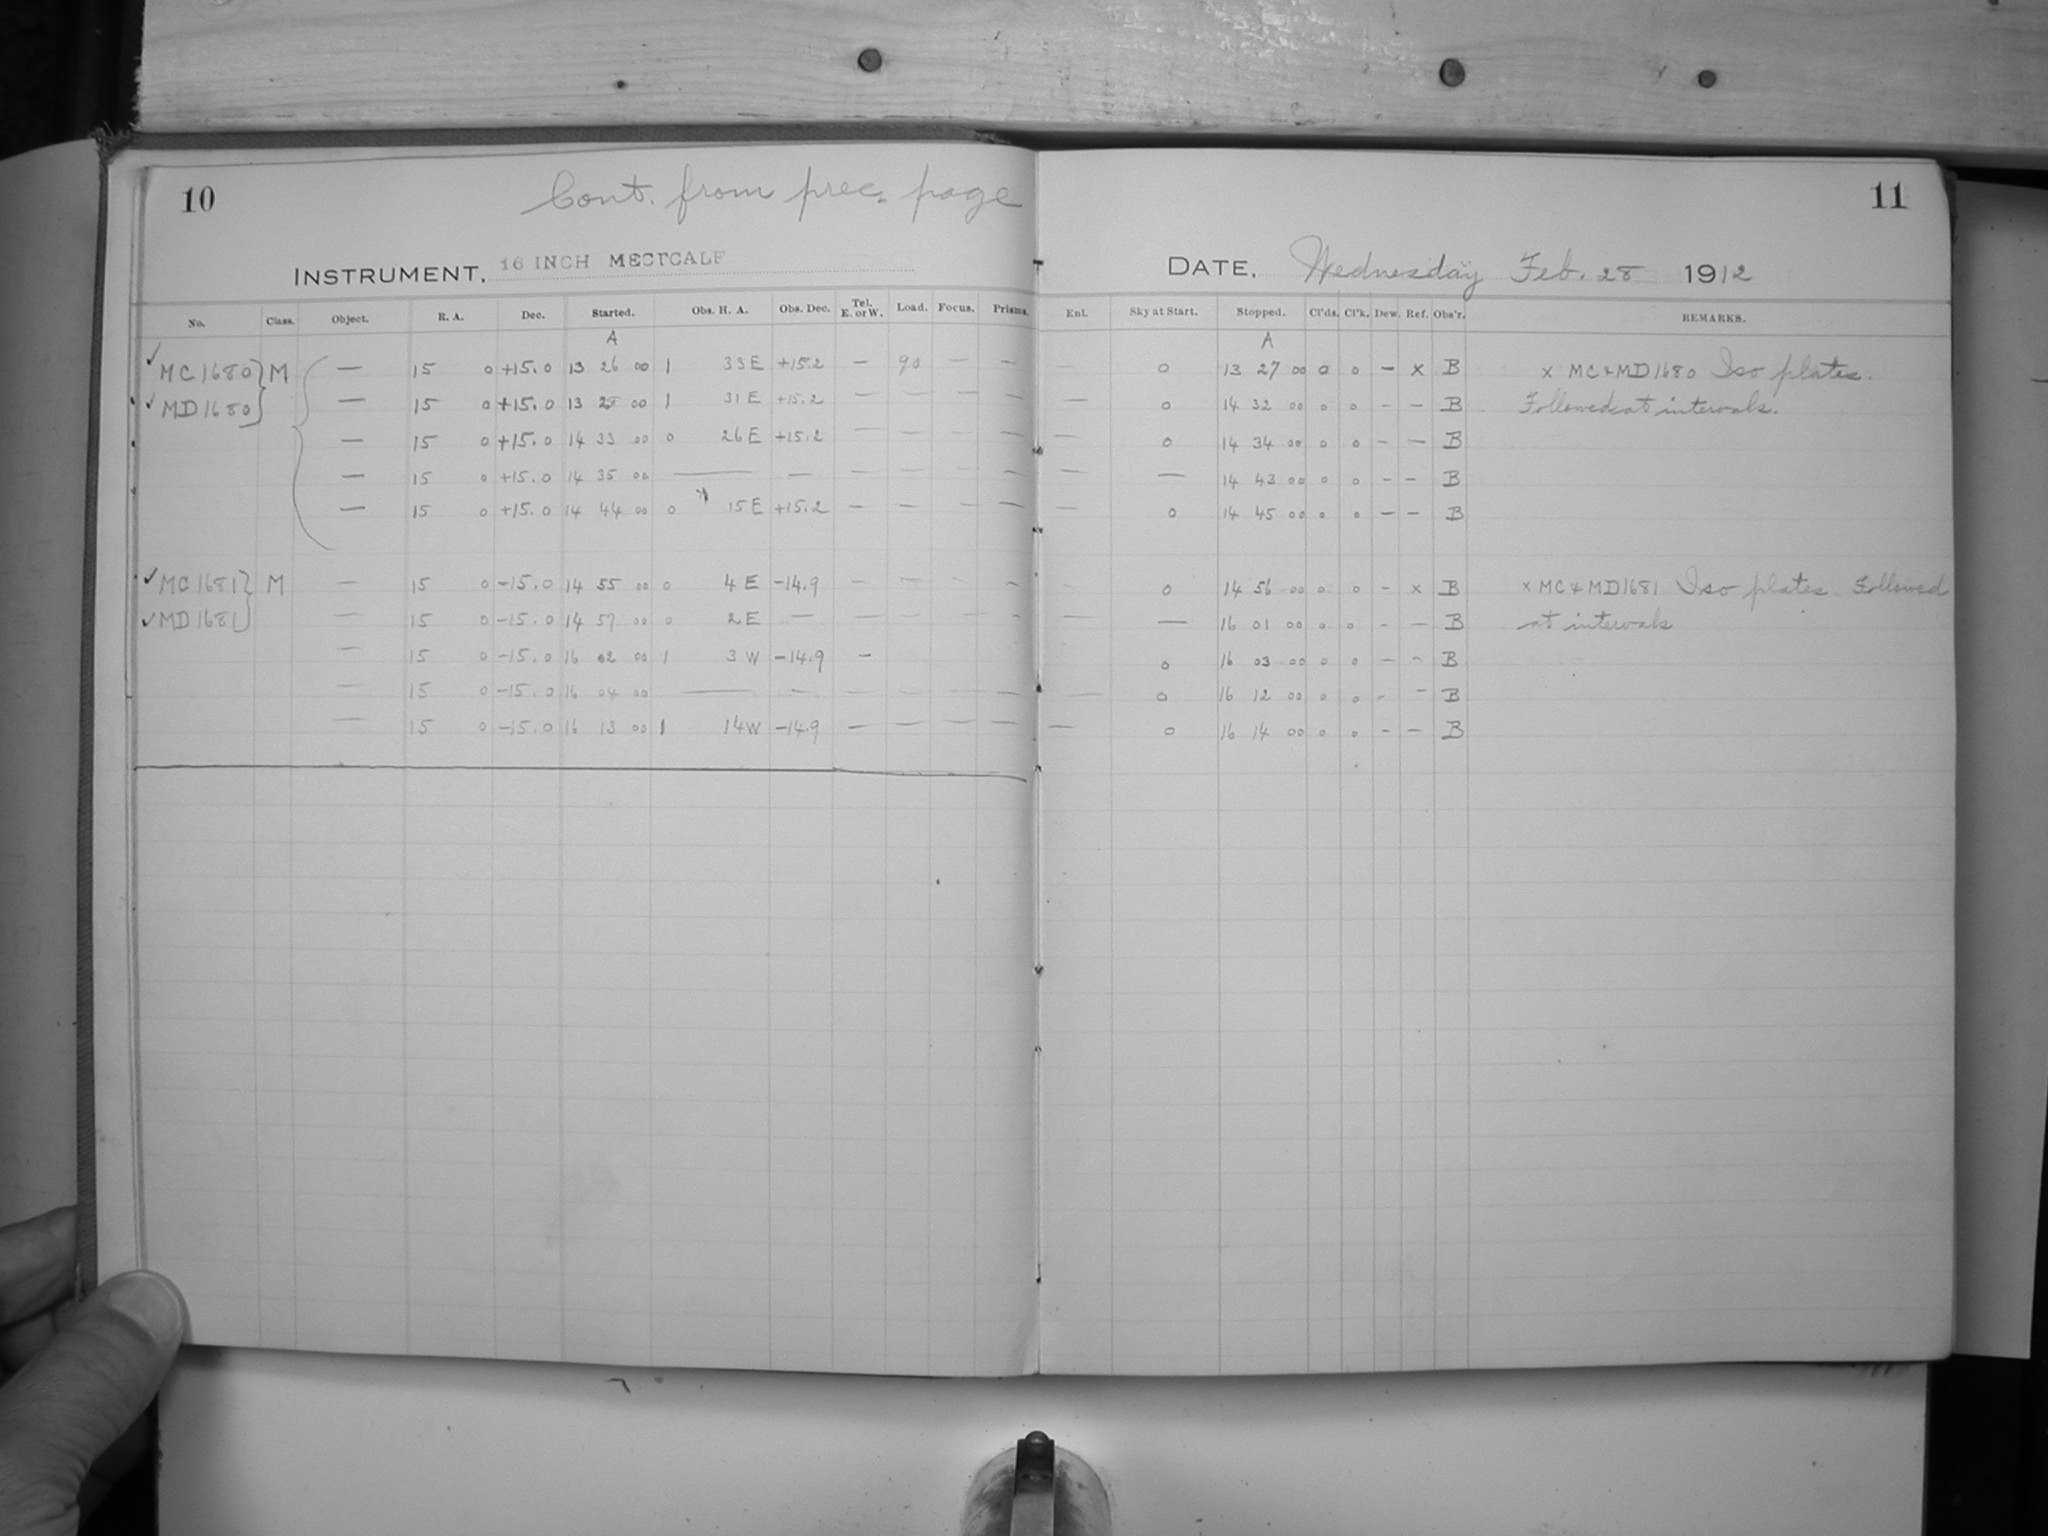 10
Cont. from prec. page
INSTRUMENT, 16 INCH METCALF
No. Class. Object. R. A. Dec. Started. Obs. H. A. Obs. Dec. Tel. E. or W. Load. Focus. Prisms.
A
✓ MC1680 } M — 15 0 +15.0 13 26 00 1 33 E +15.2 — 90 — —
✓ MD1680 } — 15 0 +15.0 13 28 00 1 31 E +15.2 — — — —
— 15 0 +15.0 14 33 00 0 26 E +15.2 — — — —
— 15 0 +15.0 14 35 00 — — — — — —
— 15 0 +15.0 14 44 00 0 15 E +15.2 — — — —
✓ MC1681 } M — 15 0 -15.0 14 55 00 0 4 E -14.9 — — — —
✓ MD1681 } — 15 0 -15.0 14 57 00 0 2 E — — — — —
— 15 0 -15.0 16 02 00 1 3 W -14.9 —
— 15 0 -15.0 16 04 00 — — — — — —
— 15 0 -15.0 16 13 00 1 14 W -14.9 — — — —
11
DATE, Wednesday Feb. 28 1912
Enl. Sky at Start. Stopped. Cl'ds. Cl'k. Dew. Ref. Obs'r. REMARKS.
A
— 0 13 27 00 0 0 — x B x MC & MD1680 Iso plates.
— 0 14 32 00 0 0 — — B Followed at intervals.
— 0 14 34 00 0 0 — — B
— — 14 43 00 0 0 — — B
— 0 14 45 00 0 0 — — B
— 0 14 56 00 0 0 — x B x MC & MD1681 Iso plates Followed
— — 16 01 00 0 0 — — B at intervals
0 16 03 00 0 0 — — B
— 0 16 12 00 0 0 — — B
— 0 16 14 00 0 0 — — B